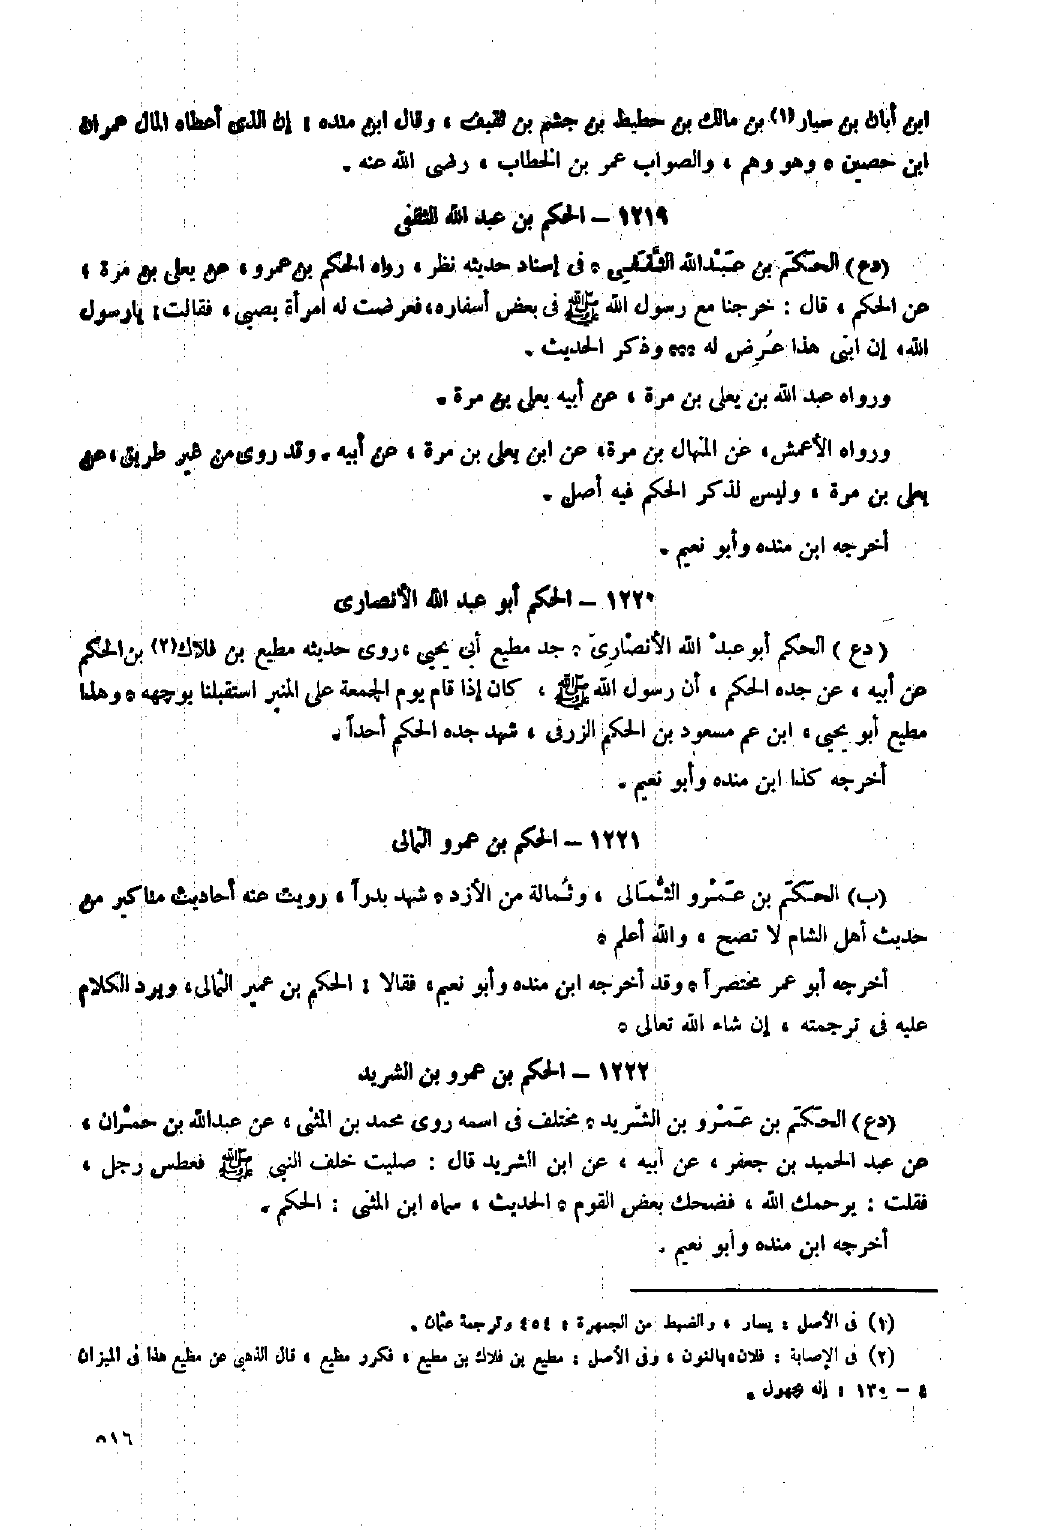 ابن أبان بن سيار(١) بن مالك بن حطيط بن جشم بن ثقيف ، وقال ابن منده : إن الذى أعطاه المال عمران
ابن حصين ، وهو وهم ، والصواب عمر بن الخطاب ، رضى الله عنه .
١٢١٩ – الحكم بن عبد الله الثقفى
(دع) الحَكَم بن عَبْدالله الثَّقَفِي ، فى إسناد حديثه نظر ، رواه الحكم بن عمرو ، عن يعلى بن مرة ،
عن الحكم ، قال : خرجنا مع رسول الله ﷺ فى بعض أسفاره، فعرضت له امرأة بصبى ، فقالت : يارسول
الله، إن ابنى هذا عُرِض له ... وذكر الحديث .
ورواه عبد الله بن يعلى بن مرة ، عن أبيه يعلى بن مرة .
ورواه الأعمش، عن المنهال بن مرة، عن ابن يعلى بن مرة ، عن أبيه . وقد روى من غير طريق، عن
يعلى بن مرة ، وليس لذكر الحكم فيه أصل .
أخرجه ابن منده وأبو نعيم .
١٢٢٠ – الحكم أبو عبد الله الأنصارى
( دع ) الحكم أبو عبدْ الله الأنصَارِىّ . جد مطيع أبى يحيى ، روى حديثه مطيع بن فلاك(٢) بن الحكم
عن أبيه ، عن جده الحكم ، أن رسول الله ﷺ ، كان إذا قام يوم الجمعة على المنبر استقبلنا بوجهه . وهذا
مطيع أبو يحيى ، ابن عم مسعود بن الحكم الزرقى ، شهد جده الحكم أحداً .
أخرجه كذا ابن منده وأبو نعيم .
١٢٢١ – الحكم بن عمرو الثمالى
(ب) الحَكَم بن عَمْرو الثُّمَالى ، وثُمالة من الأزد . شهد بدراً ، رويت عنه أحاديث مناكير من
حديث أهل الشام لا تصح ، والله أعلم .
أخرجه أبو عمر مختصراً . وقد أخرجه ابن منده وأبو نعيم، فقالا : الحكم بن عمير الثمالى، ويرد الكلام
عليه فى ترجمته ، إن شاء الله تعالى .
١٢٢٢ – الحكم بن عمرو بن الشريد
(دع) الحَكَم بن عَمْرو بن الشَّريد . مختلف فى اسمه روى محمد بن المثنى ، عن عبدالله بن حمْران ،
عن عبد الحميد بن جعفر ، عن أبيه ، عن ابن الشريد قال : صليت خلف النبى ﷺ فعطس رجل ،
فقلت : يرحمك الله ، فضحك بعض القوم . الحديث ، سماه ابن المثنى : الحكم .
أخرجه ابن منده وأبو نعيم .
(١) فى الأصل : يسار ، والضبط من الجمهرة : ٤٥٤ وترجمة عثمان .
(٢) فى الإصابة : فلان، بالنون ، وفى الأصل : مطيع بن فلاك بن مطيع ، فكرر مطيع ، قال الذهبى عن مطيع هذا فى الميزان
٤ – ١٣٠ : إنه مجهول .
٥١٦